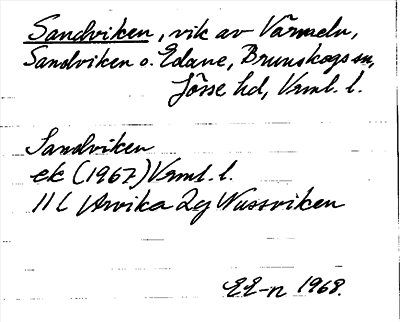 Sandviken, vik av Värmeln,
Sandviken o. Edane, Brunskogs sn,
Jösse hd, Vrml. l.
Sandviken
ek (1967) Vrml. l.
11 C Arvika 2g Nussviken
EE-n 1968.